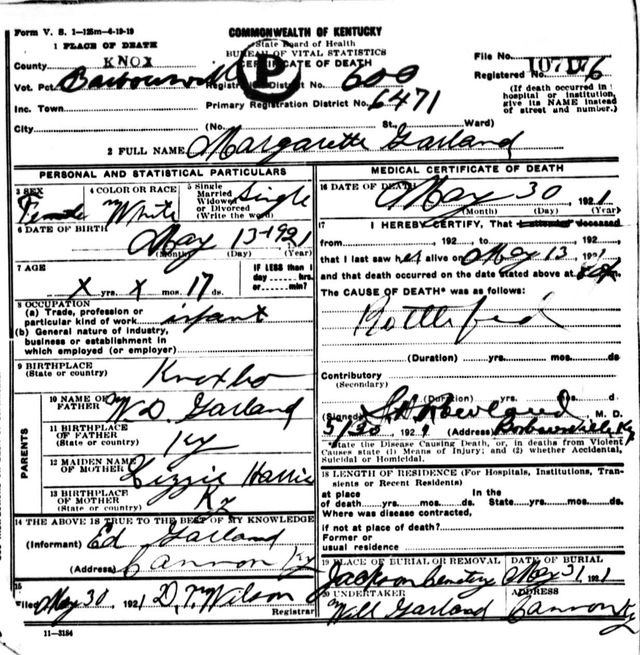 Form V. S. 1-125m-6-19-19
COMMONWEALTH OF KENTUCKY
State Board of Health
BUREAU OF VITAL STATISTICS
CERTIFICATE OF DEATH
1 PLACE OF DEATH
County KNOX
File No. 10717
Registered No. 6
Vot. Pct. Barbourville Registration District No. 600
Inc. Town Primary Registration District No. 6471
(If death occurred in hospital or institution, give its NAME instead of street and number.)
City (No. St., Ward)
2 FULL NAME Margarette Garland
PERSONAL AND STATISTICAL PARTICULARS
3 SEX Female
4 COLOR OR RACE White
5 Single Married Widowed or Divorced (Write the word) Single
6 DATE OF BIRTH May 13 1921
(Month) (Day) (Year)
7 AGE X yrs. X mos. 17 ds.
IF LESS than 1 day hrs. or min.?
8 OCCUPATION
(a) Trade, profession or particular kind of work infant
(b) General nature of industry, business or establishment in which employed (or employer)
9 BIRTHPLACE (State or country) Knox Co
PARENTS
10 NAME OF FATHER W D Garland
11 BIRTHPLACE OF FATHER (State or country) Ky
12 MAIDEN NAME OF MOTHER Lizzie Harris
13 BIRTHPLACE OF MOTHER (State or country) Ky
14 THE ABOVE IS TRUE TO THE BEST OF MY KNOWLEDGE
(Informant) Ed Garland
(Address) Cannon Ky
15
Filed May 30, 1921 D. M Wilson
Registrar
11-3184
MEDICAL CERTIFICATE OF DEATH
16 DATE OF DEATH May 30, 1921
(Month) (Day) (Year)
17 I HEREBY CERTIFY, That I attended deceased
from , 192 to , 192
that I last saw her alive on May 13, 1921
and that death occurred on the date stated above at
The CAUSE OF DEATH* was as follows:
Bottle fed
(Duration) yrs. mos. ds.
Contributory (Secondary)
(Duration) yrs. mos. d.
(Signed) M. D.
5/30 192 (Address) Barbourville Ky
State the Disease Causing Death, or, in deaths from Violent Causes state (1) Means of Injury; and (2) whether Accidental, Suicidal or Homicidal.
18 LENGTH OF RESIDENCE (For Hospitals, Institutions, Transients or Recent Residents)
at place of death yrs. mos. ds. In the State yrs. mos. ds.
Where was disease contracted,
if not at place of death?
Former or usual residence
19 PLACE OF BURIAL OR REMOVAL DATE OF BURIAL
Jackson Cemetery May 31, 1921
20 UNDERTAKER ADDRESS
Will Garland Cannon Ky
P